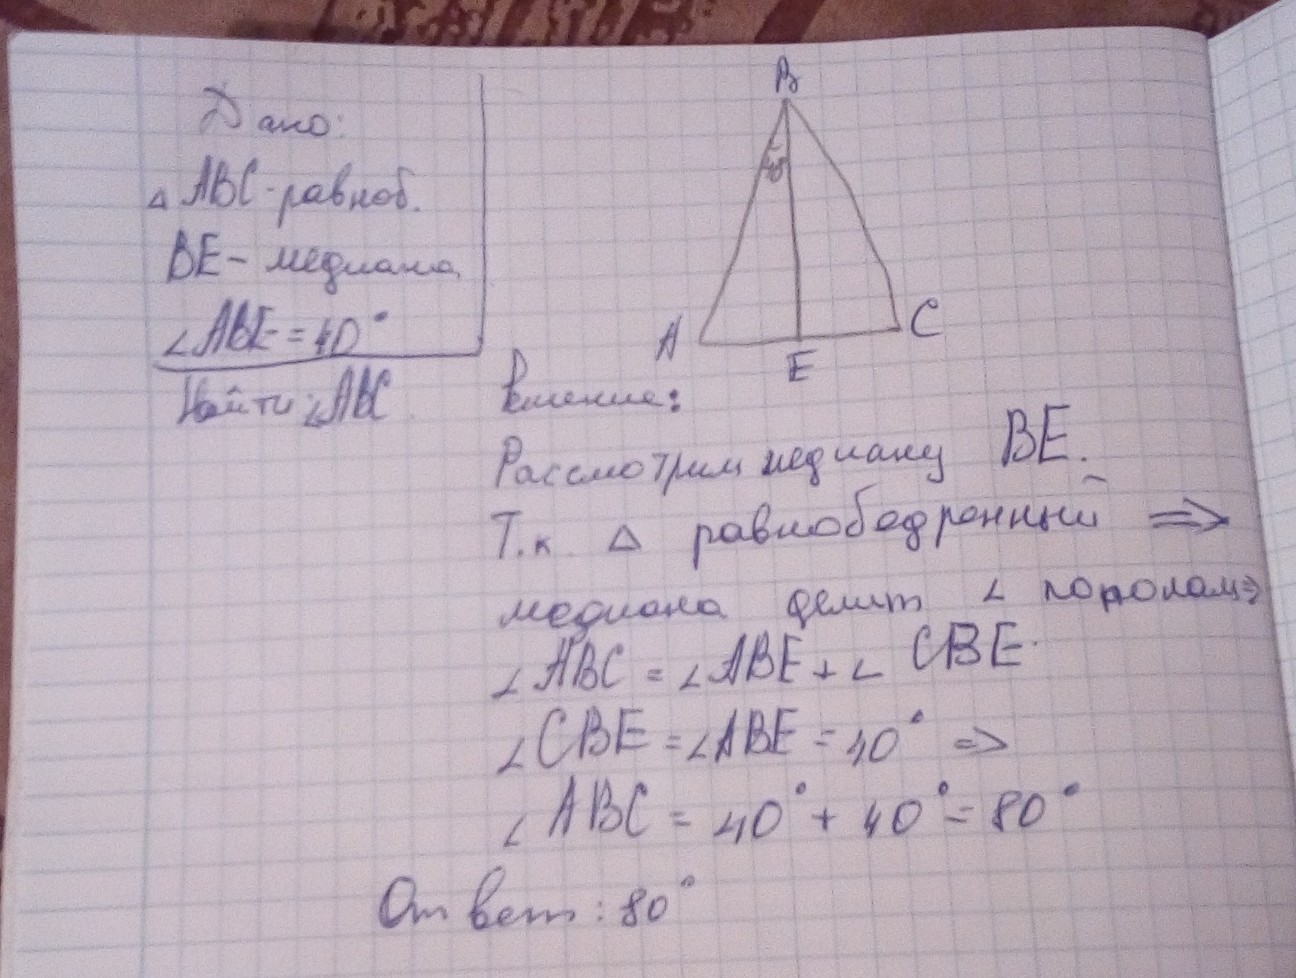 Дано:
△ABC - равноб.
BE - медиана
∠ABE = 40°
Найти: ∠ABC
B
40°
A
C
E
Решение:
Рассмотрим медиану BE.
Т.к. △ равнобедренный =>
медиана делит ∠ пополам =>
∠ABC = ∠ABE + ∠CBE.
∠CBE = ∠ABE = 40° =>
∠ABC = 40° + 40° = 80°
Ответ: 80°